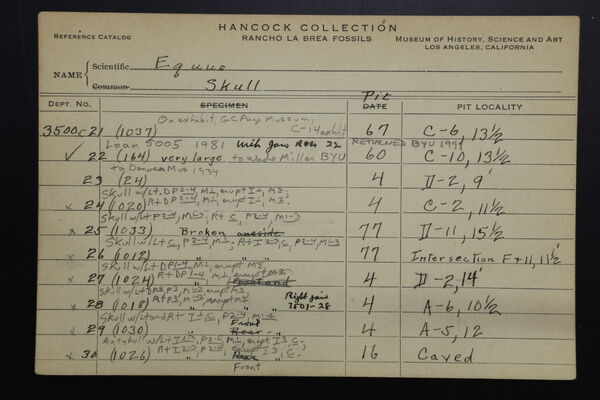 HANCOCK COLLECTION
REFERENCE CATALOG
RANCHO LA BREA FOSSILS
MUSEUM OF HISTORY, SCIENCE AND ART
LOS ANGELES, CALIFORNIA
NAME
Scientific Equus
Common Skull
DEPT. NO. SPECIMEN Pit DATE PIT LOCALITY
On exhibit, GC Page Museum;
C-14 exhibit
3500-21 (1037) 67 C-6, 13½
Loan 5005 1981 With Jaw RETURNED BYU 1991
✓ 22 (164) very large to Wade Miller BYU 60 C-10, 13½
to Denver Mus 1934
23 (24) 4 D-2, 9'
Skull w/Lt. DP2-4, M1, erupt I1, M2.
x 24 (1020) Rt DP2-4, M1, erupt I1, M2. 4 C-2, 11½
Skull w/Lt P2-4, M1-3; Rt C, P2-4, M1-3
x 25 (1033) Broken one side 77 D-11, 15½
Skull w/Lt C, P2-4, M1-3; Rt I2-3, C, P2-4, M1-3
x 26 (1012) " " 77 Intersection F+11, 11½
Skull w/Lt DP1-4, M1, erupt M2
x 27 (1024) Rt DP1-4, M1, erupt M2 4 D-2, 14'
x 28 (1018) Right jaw 4 A-6, 10½
3801-28
Skull w/Lt and Rt I1-3, C, P2-4, M1-2
Front
x 29 (1030) Rear " 4 A-5, 12
x 30 (1026) Rear " 16 Caved
Front